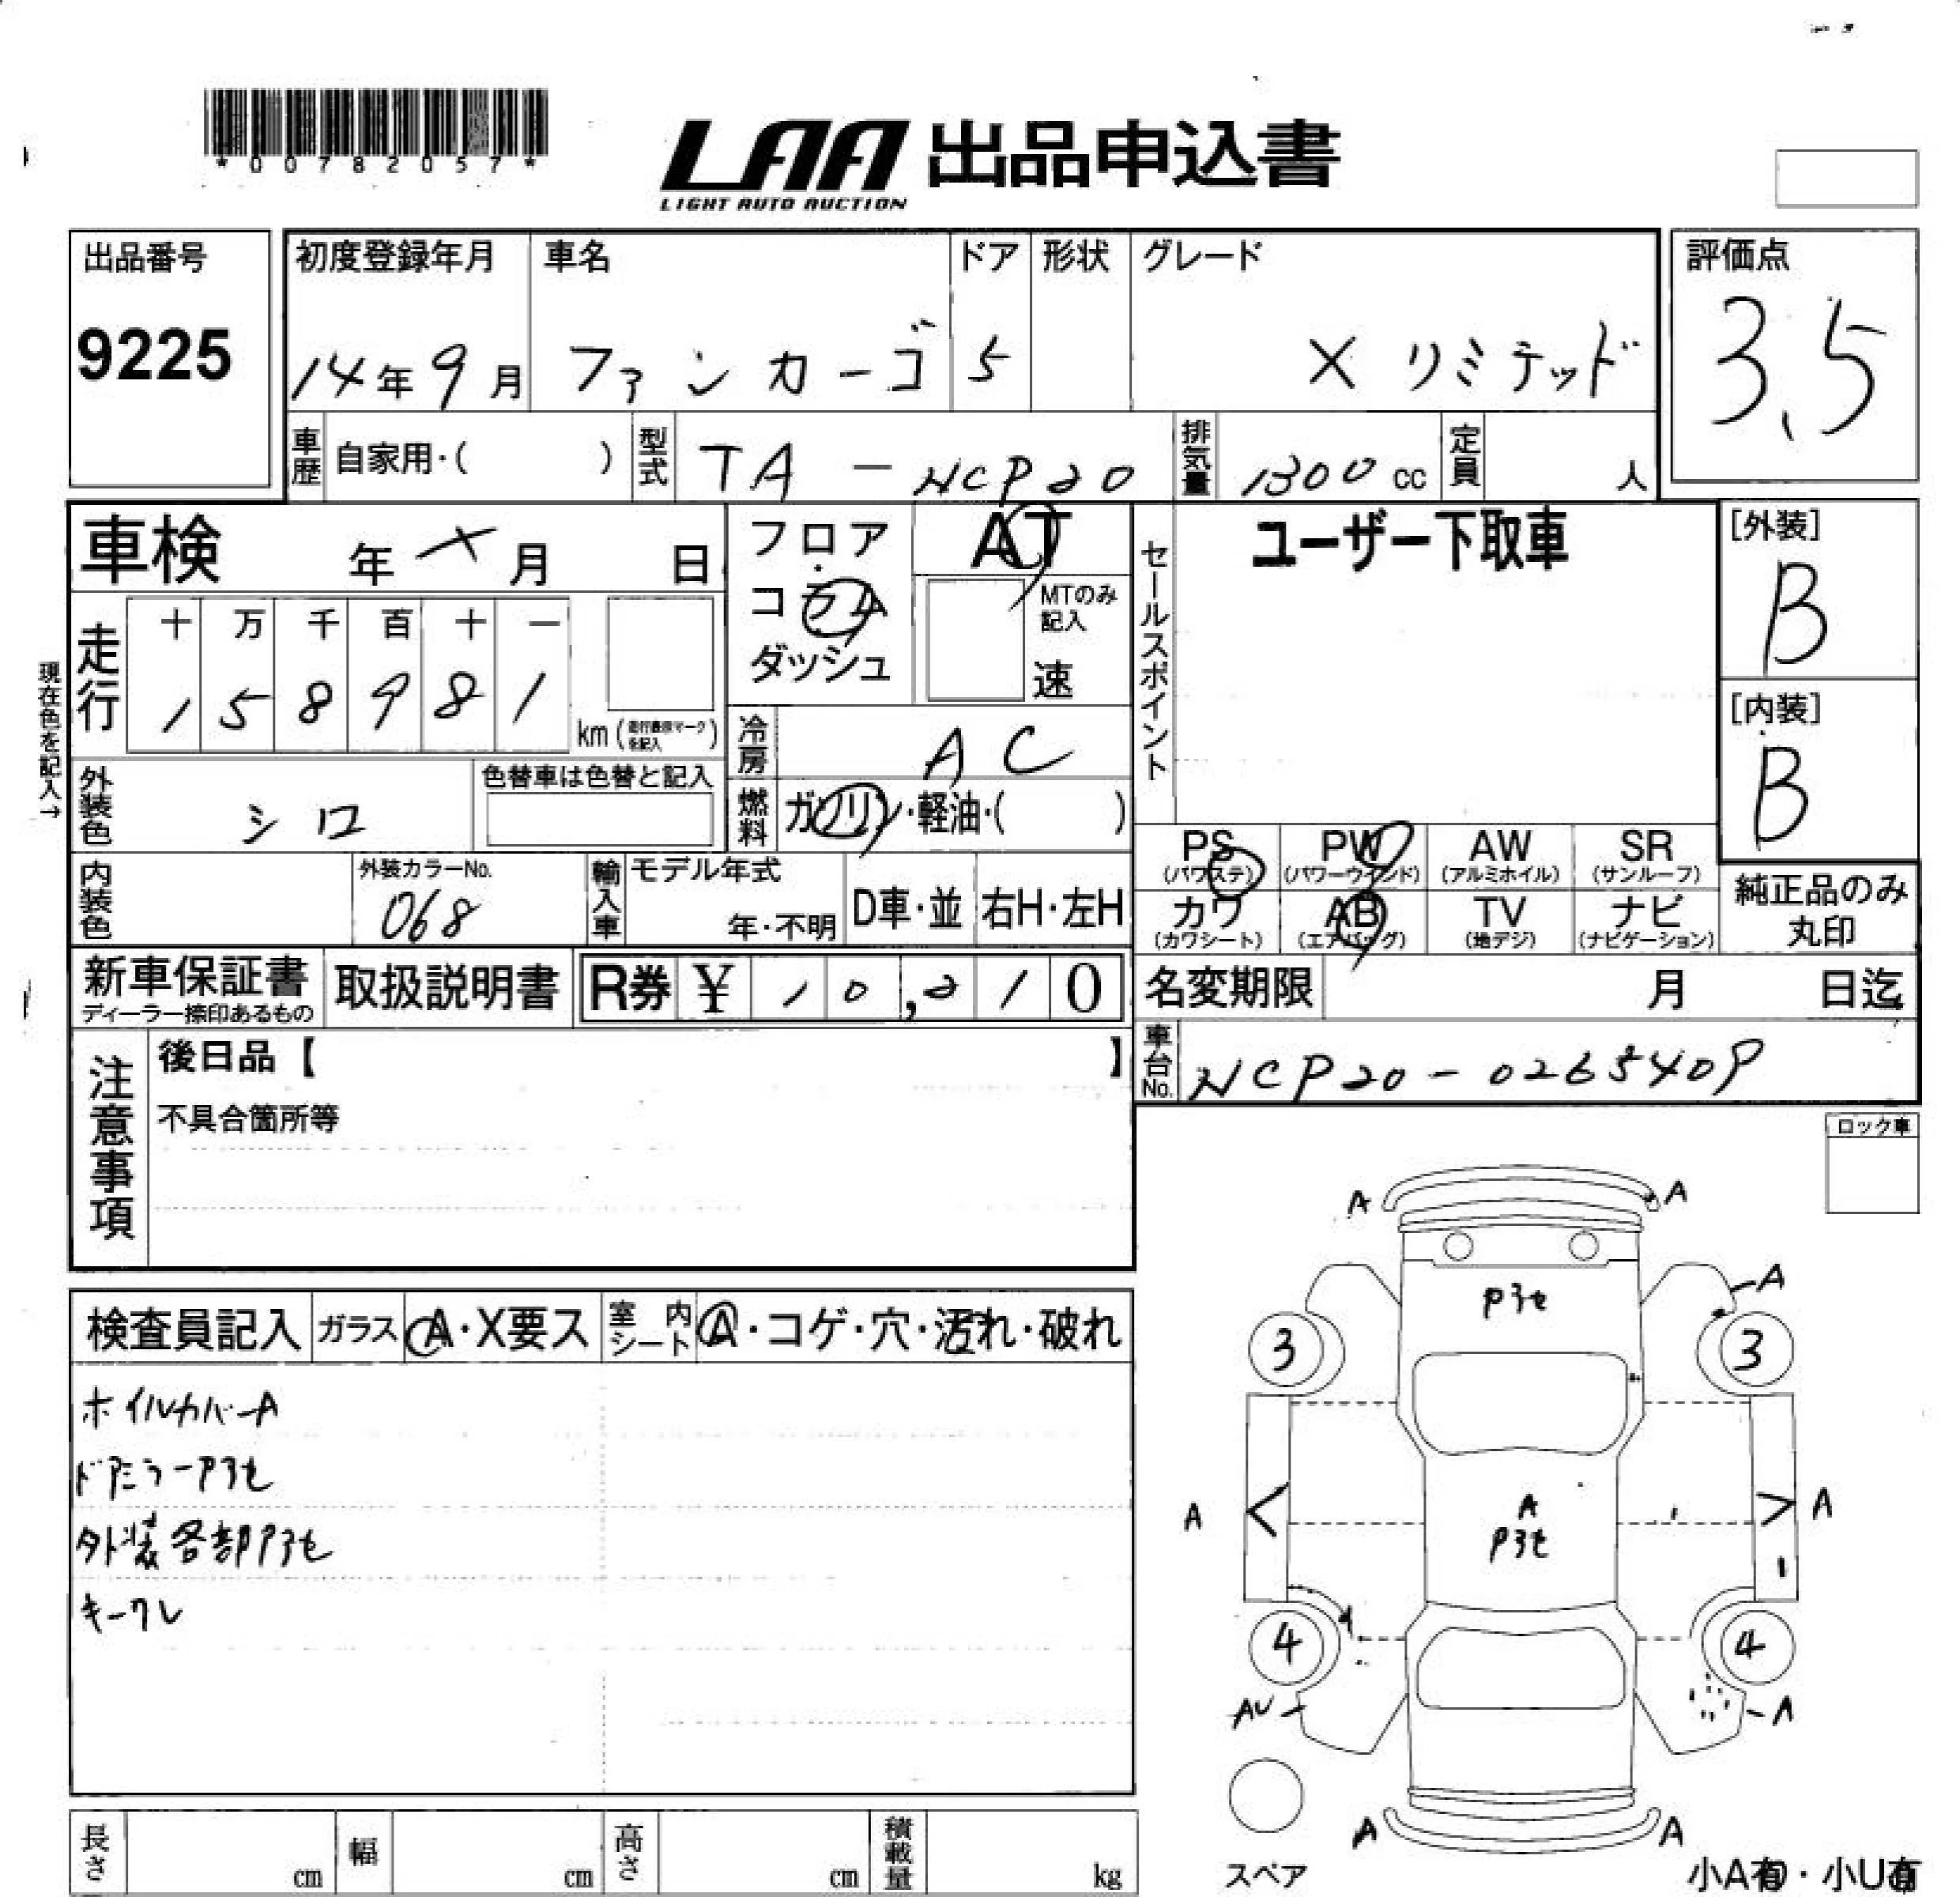 *00782057*
LAA 出品申込書
LIGHT AUTO AUCTION
出品番号
9225
初度登録年月
14年9月
車名
ファンカーゴ
ドア
5
形状
グレード
X リミテッド
評価点
3.5
車歴 自家用・( )
型式 TA-NCP20
排気量 1300cc
定員 人
車検 年 月 日
フロア
コラム
ダッシュ
AT
MTのみ記入
速
セールスポイント
ユーザー下取車
[外装]
B
[内装]
B
現在色を記入→
走行
十 万 千 百 十 一
1 5 8 9 8 1
km
冷房 AC
外装色 シロ
色替車は色替と記入
燃料 ガソリン・軽油・( )
内装色
外装カラーNo.
068
輸入車
モデル年式
年・不明
D車・並
右H・左H
PS
(パワステ)
PW
(パワーウインド)
AW
(アルミホイル)
SR
(サンルーフ)
カワ
(カワシート)
AB
(エアバッグ)
TV
(地デジ)
ナビ
(ナビゲーション)
純正品のみ
丸印
新車保証書
ディーラー捺印あるもの
取扱説明書
R券 ¥ 10,210
名変期限 月 日迄
車台No. NCP20-0265409
注意事項
後日品【 】
不具合箇所等
ロック車
検査員記入
ガラス A・X要ス
室内シート A・コゲ・穴・汚れ・破れ
ホイルカバーA
ドアミラーアセ
外装各部アセ
キーワレ
A
A
A
アセ
3
3
A
A
A
アセ
4
4
AU
A
A
A
スペア
小A有・小U有
長さ cm
幅 cm
高さ cm
積載量 kg